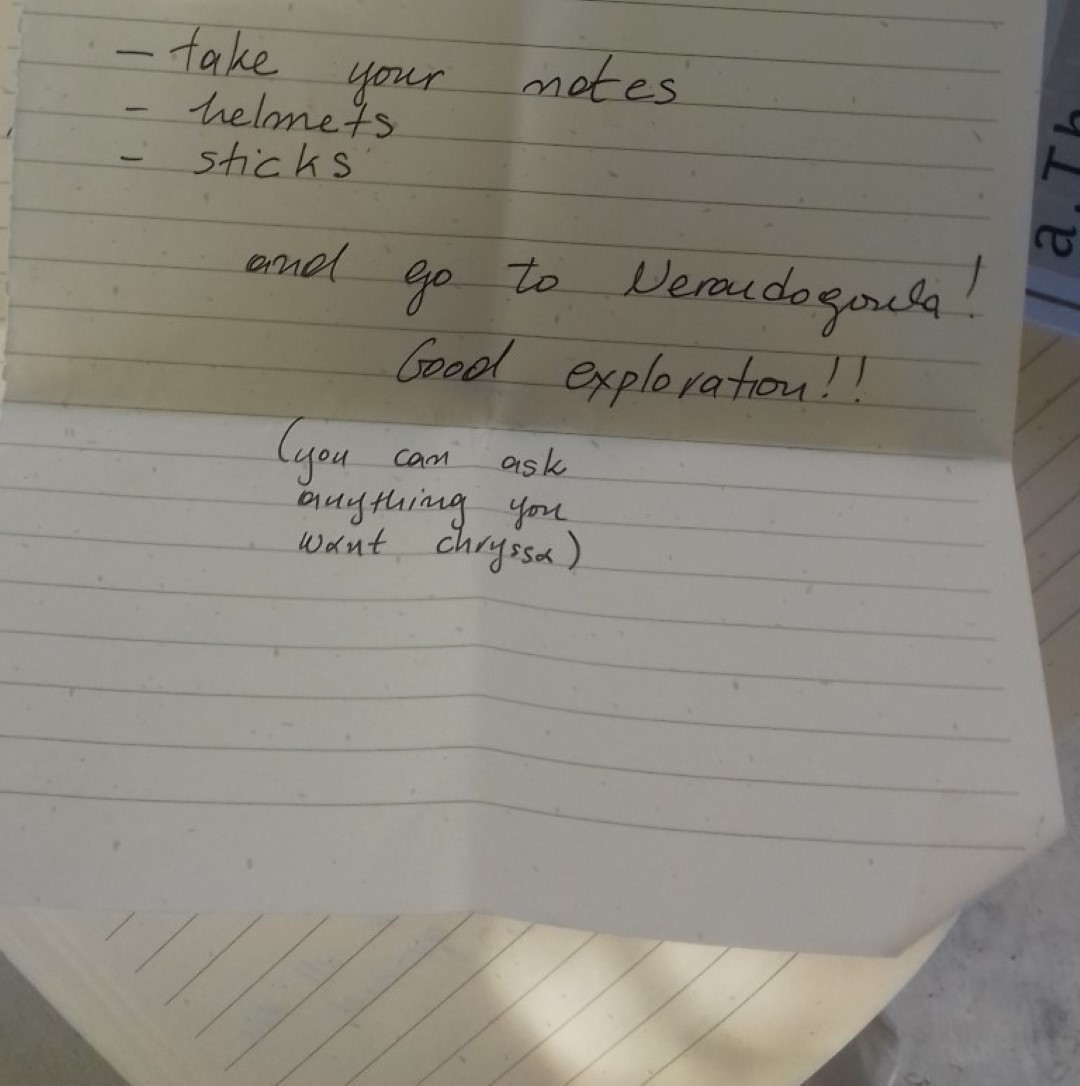 - take your notes
- helmets
- sticks
and go to Neraidogoula!
Good exploration!!
(you can ask
anything you
want chryssa)
a. Th